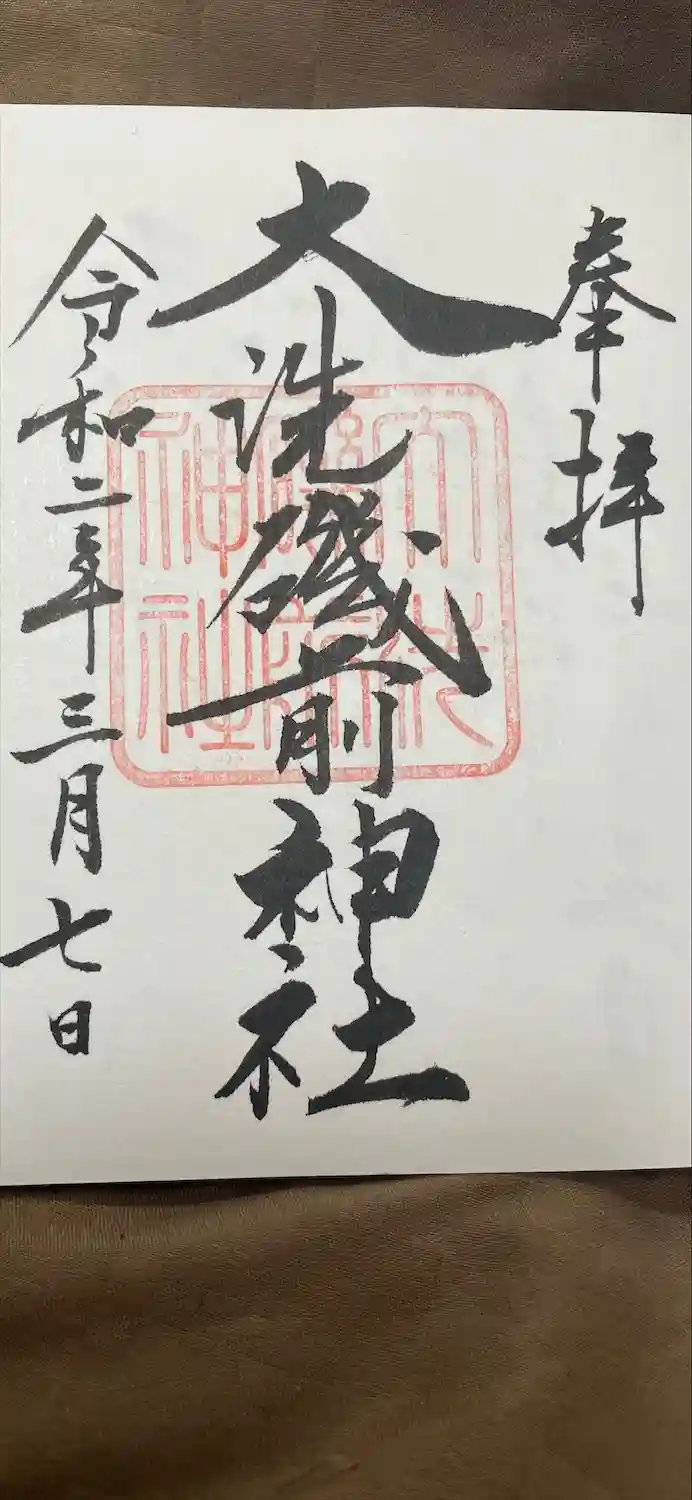 奉拝
大洗磯前神社
令和二年三月七日
大洗
磯前
神社